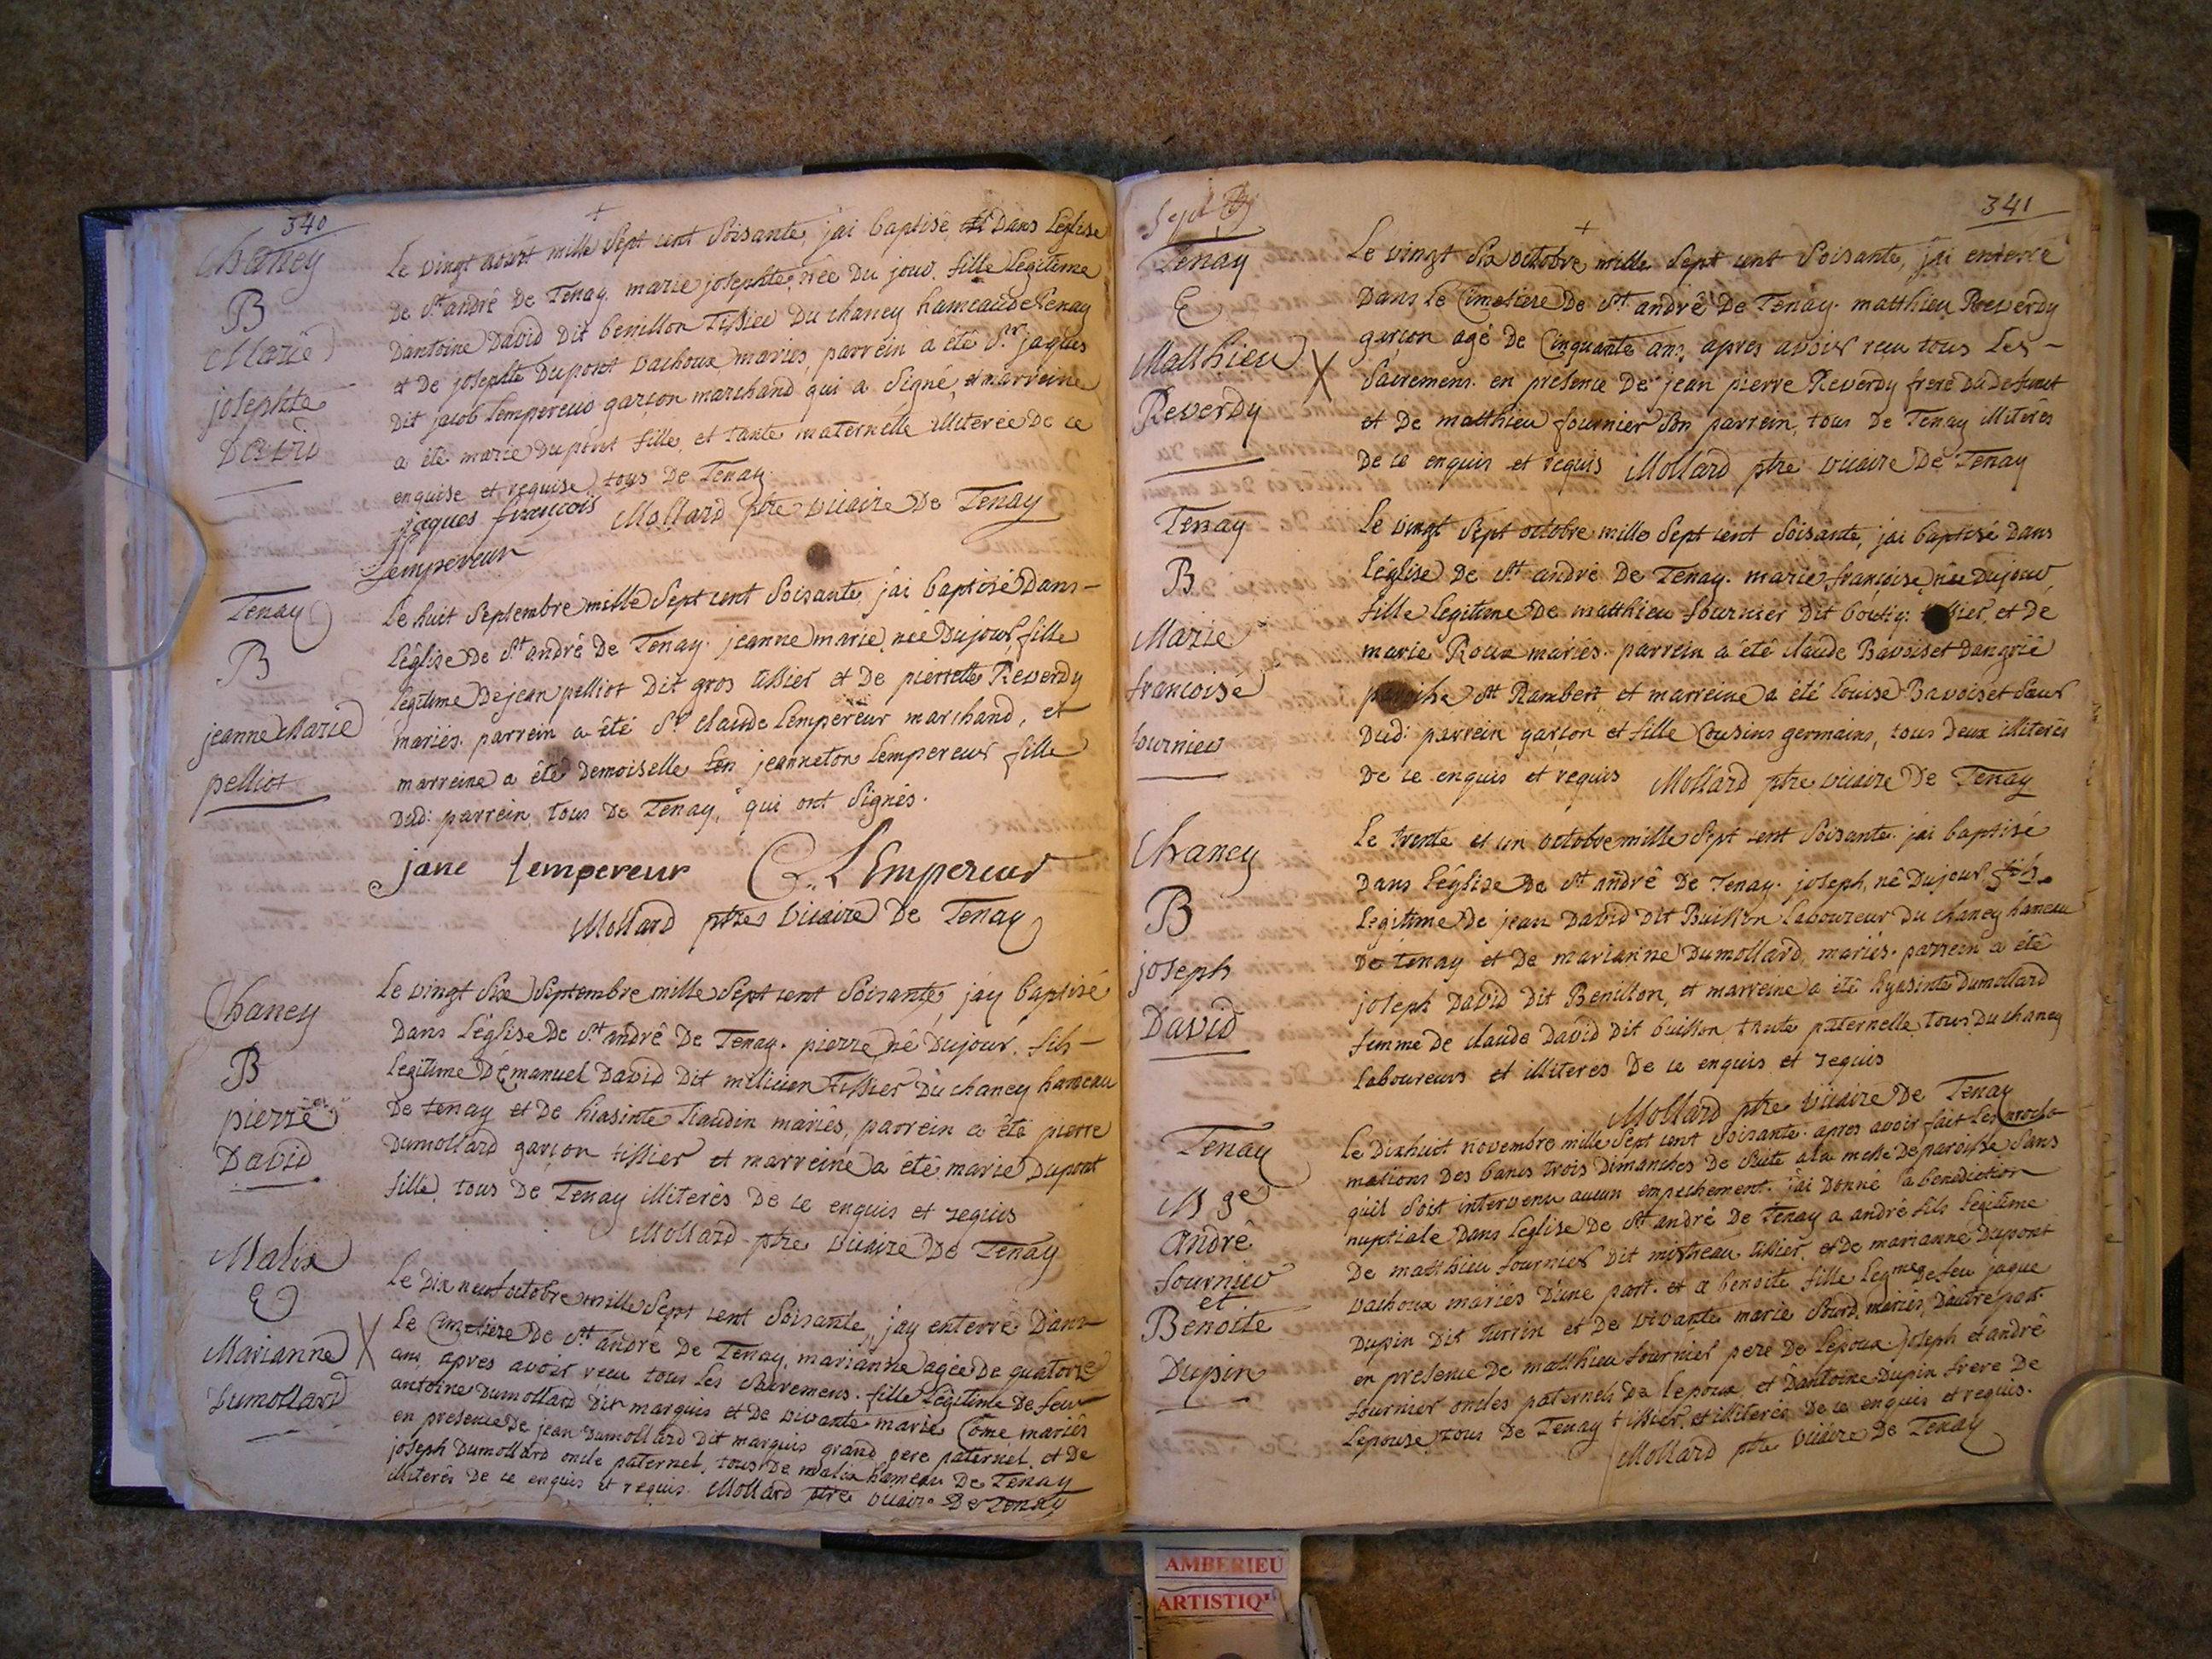 340
Chaney
B
Marie
josephte
David
Le vingt aout mille Sept cent Soisante, jai baptisé, Dans Léglise
De St andré De Tenay. marie josephte, née Du jour, fille Legitime
Dantoine David Dit benillon Tissier Du chaney hameau de Tenay
et De josephte Dupont vachoux mariés, parrein a été Sr jaques
Dit jacob Lempereur garçon marchand qui a Signé, et marreine
a été marie Dupont fille, et tante maternelle illiterée De ce
enquise et requise, tous De Tenay.
jaques françois Mollard ptre vicaire De Tenay
Lempereur
Tenay
B
jeanne Marie
pelliot
Le huit Septembre mille Sept cent Soisante, jai baptisé Dans
Léglise De St andré De Tenay. jeanne marie, née Du jour, fille
Legitime De jean pelliot Dit gros tissier et De pierrette Reverdy
mariés. parrein a été Sr claude Lempereur marchand, et
marreine a été Demoiselle jeanneton Lempereur fille
Dud: parrein, tous De Tenay, qui ont Signés.
jane lempereur C. LEmpereur
Mollard ptre Vicaire De Tenay
Chaney
B
pierre
David
Le vingt Six Septembre mille Sept cent Soisante, jay baptisé
Dans Léglise De St andré De Tenay. pierre né Du jour. fils
Legitime Démanuel David Dit milicien tissier Du chaney hameau
De tenay et De hiasinte mariés, parrein a été pierre
Dumollard garçon tissier et marreine a été marie Dupont
fille, tous De Tenay illiterés De ce enquis et requis
Mollard ptre vicaire De Tenay
Malix
E
Marianne X
Dumollard
Le Dix neuf octobre mille Sept cent Soisante, jay enterré Dans
Le Cimetiere De St andré De Tenay, marianne agée De quatorze
ans, apres avoir recu tous Les Sacremens. fille Legitime De feu
antoine Dumollard Dit marquis et De vivante marie Come mariés
en presence De jean Dumollard Dit marquis grand pere paternel. et De
joseph Dumollard oncle paternel, tous De malix hameau De Tenay
illiterés De ce enquis et requis. Mollard ptre vicaire De Tenay
341
Tenay
E
Matthieu X
Reverdy
Le vingt Six octobre mille Sept cent Soisante, jai enterré
Dans Le Cimetiere De St andré De Tenay. matthieu Reverdy
garçon agé De Cinquante ans, apres avoir recu tous Les
Sacremens. en presence De jean pierre Reverdy frere Du Defunt
et De matthieu fournier Son parrein, tous De Tenay illiterés
De ce enquis et requis Mollard ptre vicaire De Tenay
Tenay
B
Marie
francoise
fournier
Le vingt Sept octobre mille Sept cent Soisante, jai baptisé Dans
Léglise De St andré De Tenay. marie françoise, née Du jour,
fille Legitime De matthieu fournier Dit et De
marie Roux mariés. parrein a été claude Bavoiset Dangrié
St Rambert, et marreine a été Louise Bavoiset Sœur
Dud: parrein garçon et fille Cousins germains, tous Deux illiterés
De ce enquis et requis Mollard ptre vicaire De Tenay
Chaney
B
joseph
David
Le trente et un octobre mille Sept cent Soisante. jai baptisé
Dans Léglise De St andré De Tenay. joseph, né Du jour fils
Legitime De jean David Dit Buisson Laboureur Du chaney hameau
De tenay et De marianne Dumollard, mariés. parrein a été
joseph David Dit Benillon, et marreine a été hyasinte Dumollard
femme de claude David Dit buisson, tante paternelle, tous Du chaney
Laboureurs et illiteres De ce enquis et requis
Mollard ptre Vicaire De Tenay
Tenay
Mge
André
fournier
et
Benoite
Dupin
Le Dixhuit novembre mille Sept cent Soisante. apres avoir fait Les procla-
mations Des bancs trois Dimanches De Suite a La messe De paroisse Sans
quil Soit intervenu aucun empechement. jai Donné La benediction
nuptiale Dans Leglise De St andré De Tenay a andré fils Legitime
De matthieu fournier Dit mistreau tissier, et De marianne Dupont
vachoux mariés Dune part. et a benoite fille Legme De feu jaque
Dupin Dit turrin et De vivante marie Sourd, mariés, Dautre part.
en presence De matthieu fournier pere De Lepoux, joseph et andré
fournier oncles paternels De Lepoux, et Dantoine Dupin frere De
Lepouse, tous De Tenay tissiers, et illiterés De ce enquis et requis.
Mollard ptre Vicaire De Tenay
AMBERIEU
ARTISTIQ